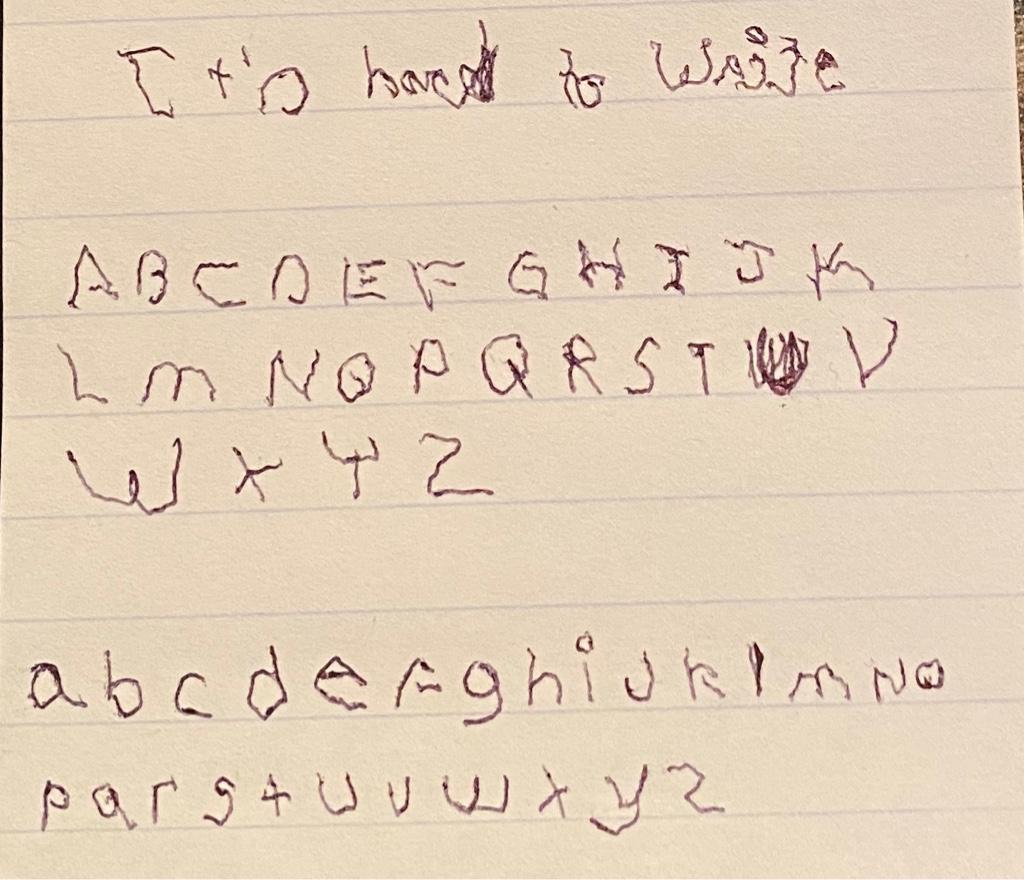 It's hard to Write
A B C D E F G H I J K
L M N O P Q R S T U V
W X Y Z
a b c d e f g h i j k l m N o
p q r s t u v w x y z